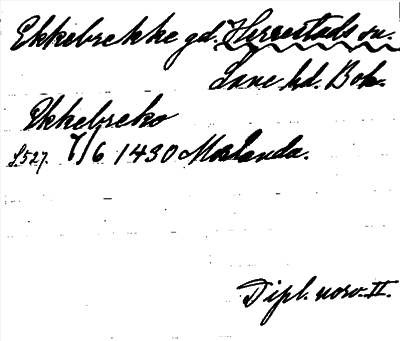 Ekkebrekke gd. Herrestads sn.
Lane hd. Boh.
Ekkebreko
S527. 7/6 1430 Morlanda.
Dipl. norv. II.